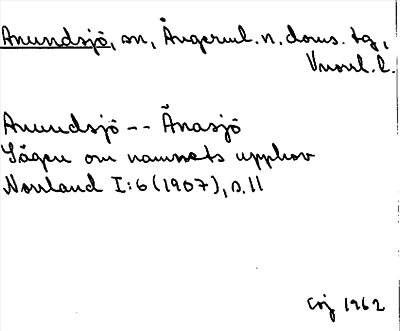 Anundsjö, sn, Ångerml. n. doms. tg,
Vnorrl. l.
Anundsjö -- Ånasjö
Sägen om namnets upphov
Norrland I:6 (1907), s. 11
1962